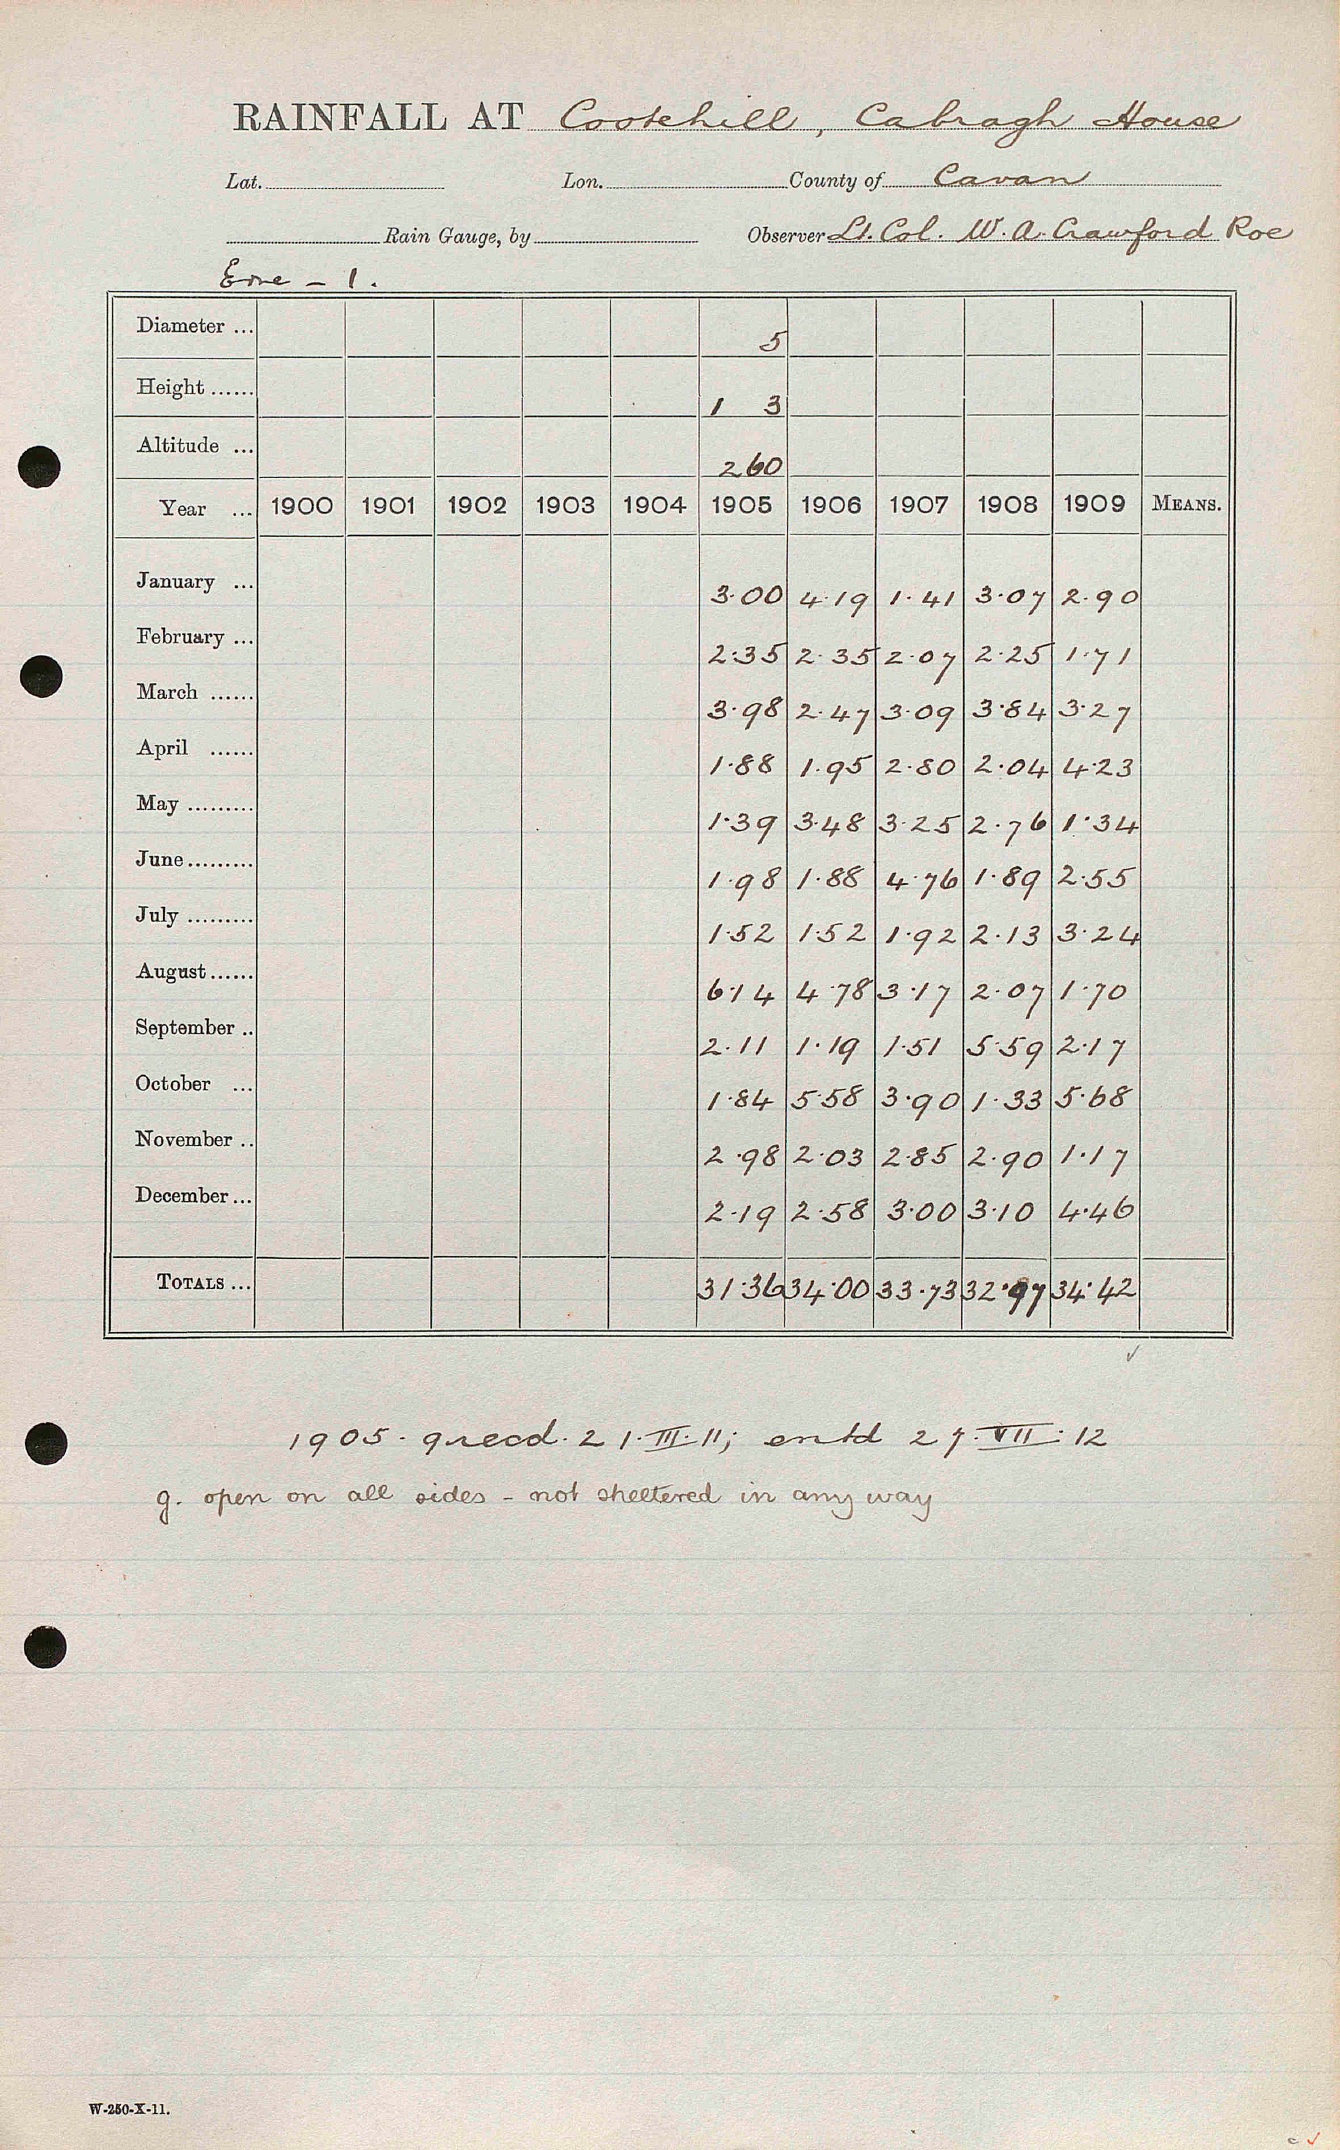 RAINFALL AT Cootehill, Cabragh House
Lat. Lon. County of Cavan
Rain Gauge, by Observer Lt. Col. W. A. Crawford Roe
Erne - 1.
Diameter ... 5
Height ...... 1 3
Altitude ... 260
Year ... 1900 1901 1902 1903 1904 1905 1906 1907 1908 1909 MEANS.
January ... 3.00 4.19 1.41 3.07 2.90
February ... 2.35 2.35 2.07 2.25 1.71
March ...... 3.98 2.47 3.09 3.84 3.27
April ...... 1.88 1.95 2.80 2.04 4.23
May ......... 1.39 3.48 3.25 2.76 1.34
June ......... 1.98 1.88 4.76 1.89 2.55
July ......... 1.52 1.52 1.92 2.13 3.24
August ...... 6.14 4.78 3.17 2.07 1.70
September .. 2.11 1.19 1.51 5.59 2.17
October ... 1.84 5.58 3.90 1.33 5.68
November .. 2.98 2.03 2.85 2.90 1.17
December ... 2.19 2.58 3.00 3.10 4.46
TOTALS ... 31.36 34.00 33.73 32.97 34.42
1905-9 recd. 21.III.11; entd 27.VII.12
g. open on all sides - not sheltered in any way
W-250-X-11.